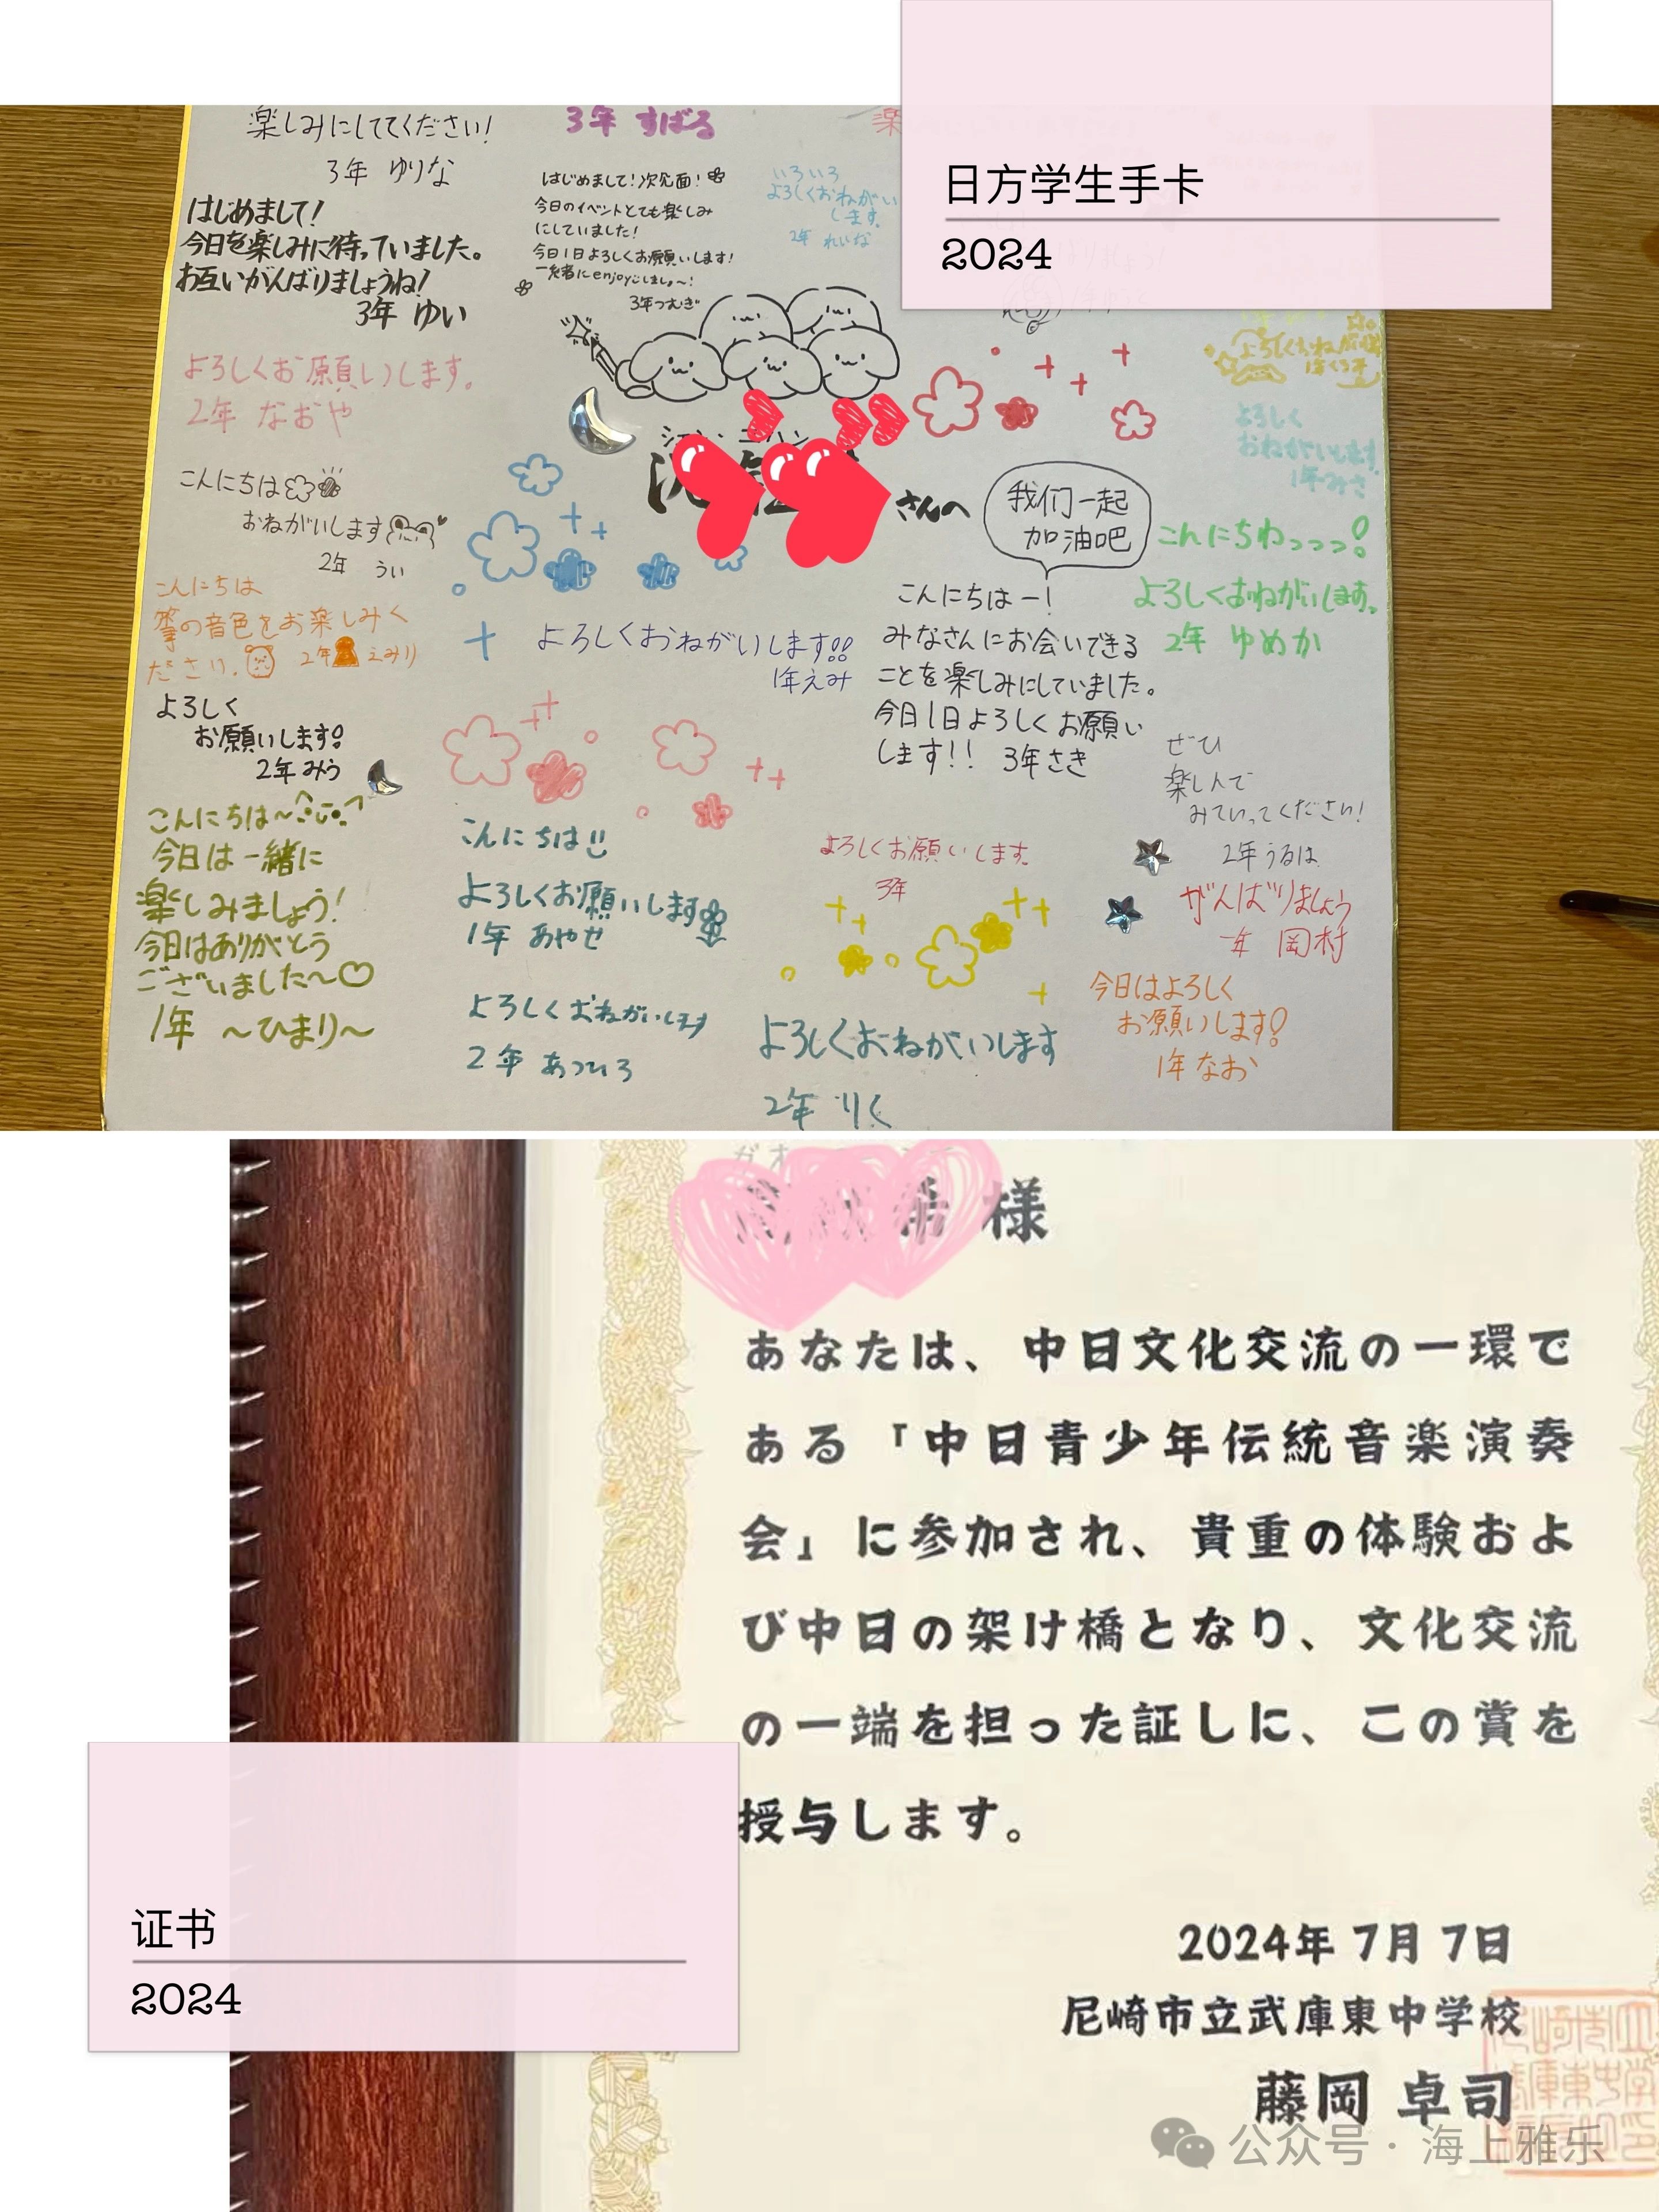 日方学生手卡
2024
楽しみにしててください!
3年 ゆりな
3年 すばる
楽
はじめまして!
今日を楽しみに待っていました。
お互いがんばりましょうね!
3年 ゆい
はじめまして!次免面!
今日のイベントとても楽しみ
にしていました!
今日1日よろしくお願いします!
一緒にenjoyしましょ〜!
3年つむぎ
いろいろ
よろしくおねがい
します。
2年 れいな
よろしくお願いします。
2年 なおや
こんにちは
おねがいします
2年 うい
こんにちは
箏の音色をお楽しみく
ださい。
2年 えみり
よろしく
お願いします!
2年 みう
こんにちは~
今日は一緒に
楽しみましょう!
今日はありがとう
ございました~♡
1年 ~ひまり~
さんへ
我们一起
加油吧
よろしくおねがいします!!
1年えみ
こんにちはー!
みなさんにお会いできる
ことを楽しみにしていました。
今日1日よろしくお願い
します!! 3年さき
よろしく
おねがいします
1年みさ
こんにちわっっっ!
よろしくおねがいします。
2年 ゆめか
ぜひ
楽しんで
みていってください!
2年うるは
がんばりましょう
一年 岡村
今日はよろしく
お願いします!
1年なお
こんにちは
よろしくお願いします
1年 あやせ
よろしくお願いします。
3年
よろしくおねがいします
2年 あつひろ
よろしくおねがいします
2年 りく
様
あなたは、中日文化交流の一環で
ある「中日青少年伝統音楽演奏
会」に参加され、貴重の体験およ
び中日の架け橋となり、文化交流
の一端を担った証しに、この賞を
授与します。
2024年 7月 7日
尼崎市立武庫東中学校
藤岡 卓司
证书
2024
公众号·海上雅乐